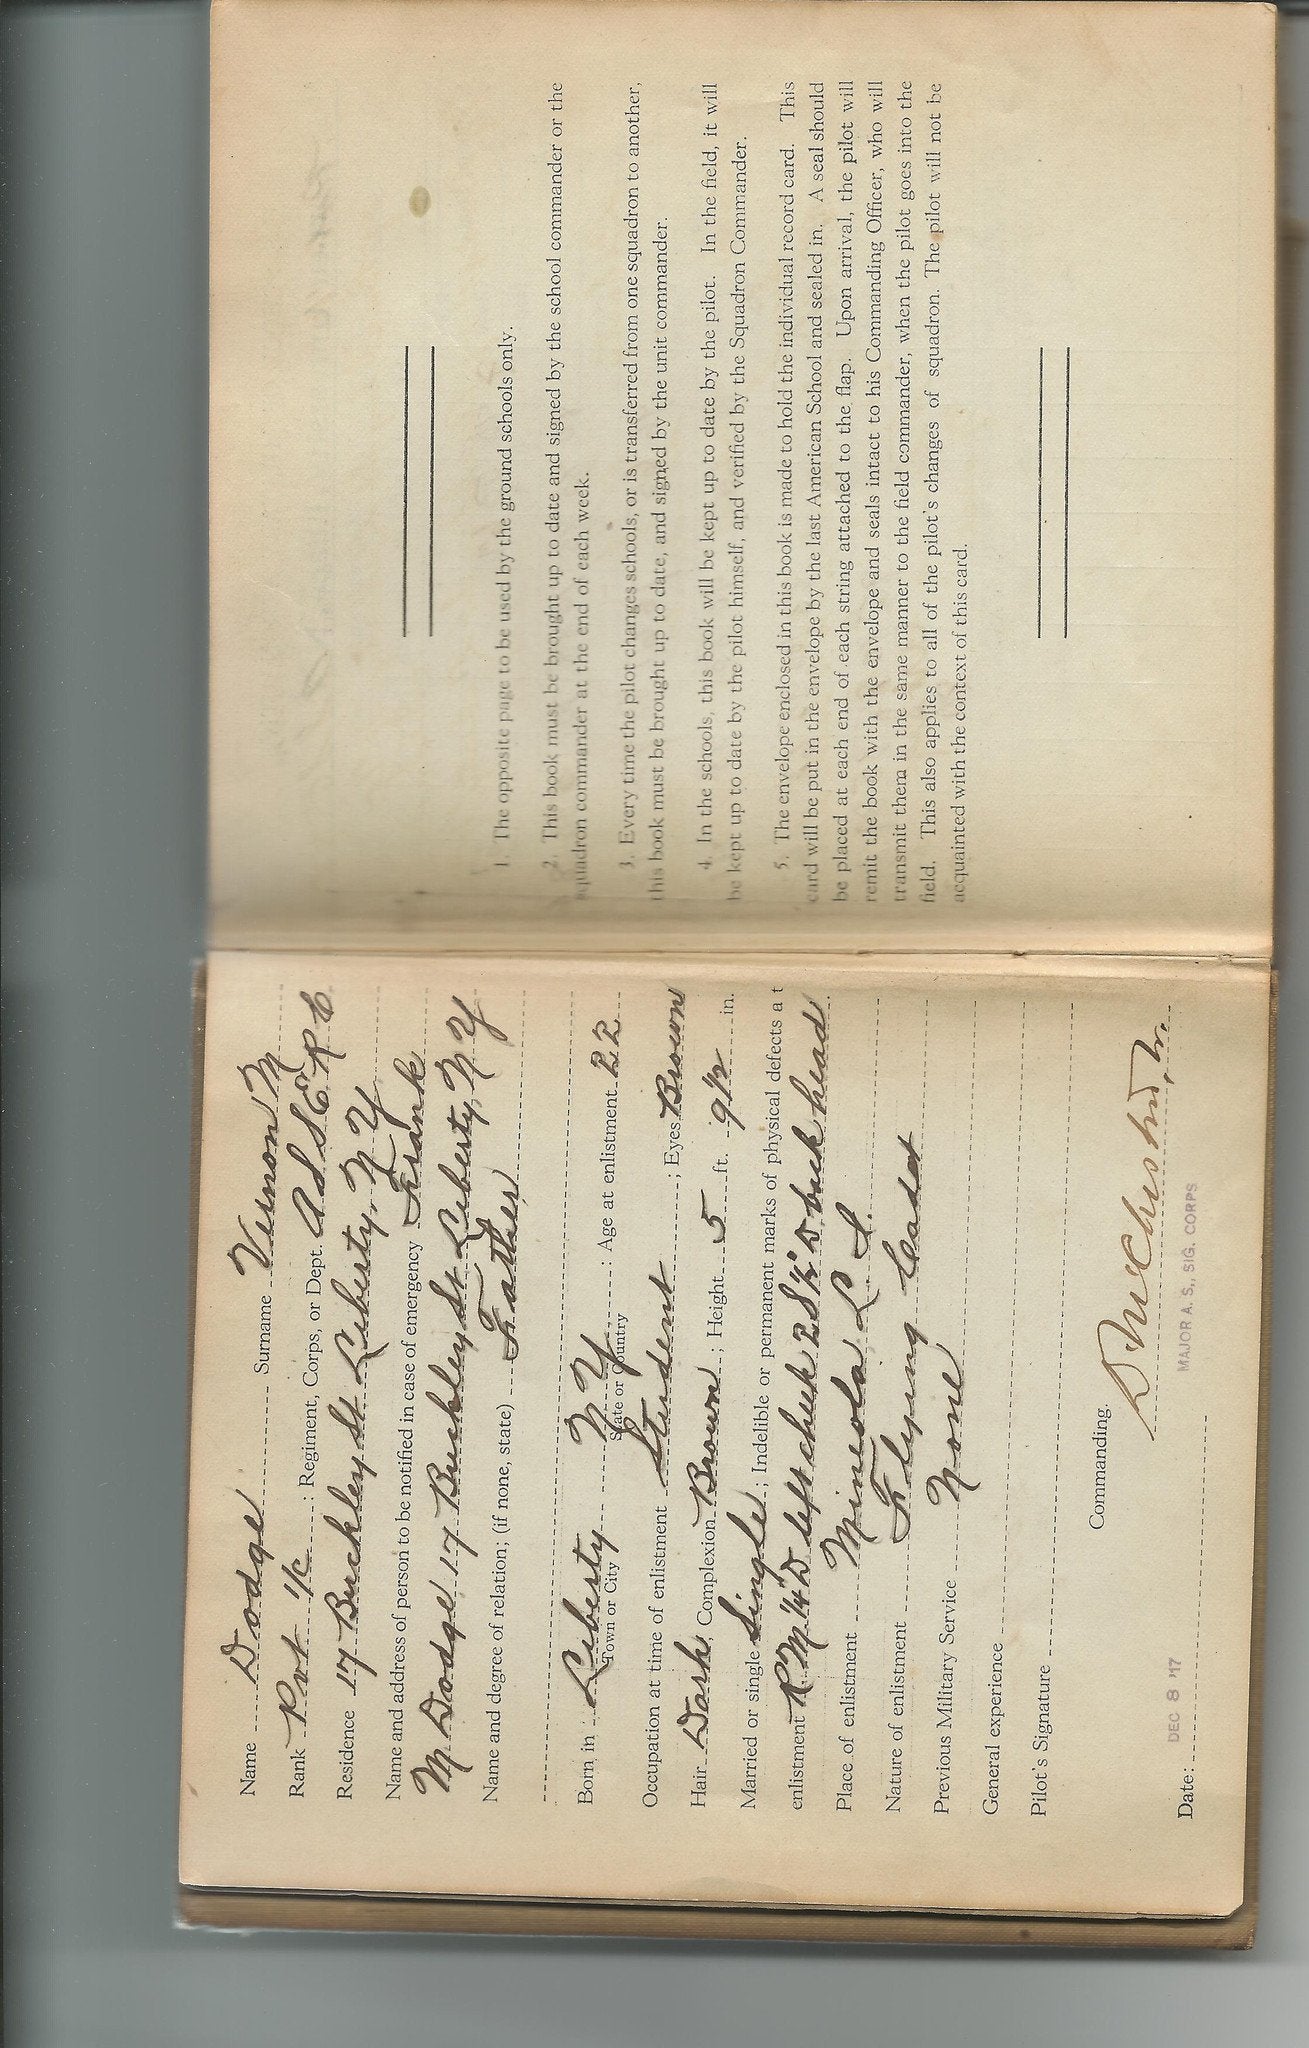 Name Dodge Surname Vernon M
Rank Pvt 1/c : Regiment, Corps, or Dept. A S S E R C
Residence 17 Buckley St Liberty, N Y
Name and address of person to be notified in case of emergency Frank
M Dodge 17 Buckley St Liberty, N Y
Name and degree of relation; (if none, state) Father
Born in Liberty N Y : Age at enlistment 22
Town or City State or Country
Occupation at time of enlistment Student ; Eyes Brown
Hair Dark ; Complexion Brown ; Height 5 ft. 9 1/2 in.
Married or single Single ; Indelible or permanent marks of physical defects at
enlistment R M 1/4" D left cheek 2 S 1/2" D back head
Place of enlistment Mineola L I.
Nature of enlistment Flying Cadet
Previous Military Service None
General experience
Pilot's Signature
Commanding.
MAJOR A. S., SIG. CORPS
Date: DEC 8 '17
1. The opposite page to be used by the ground schools only.
2. This book must be brought up to date and signed by the school commander or the
squadron commander at the end of each week.
3. Every time the pilot changes schools, or is transferred from one squadron to another,
this book must be brought up to date, and signed by the unit commander.
4. In the schools, this book will be kept up to date by the pilot. In the field, it will
be kept up to date by the pilot himself, and verified by the Squadron Commander.
5. The envelope enclosed in this book is made to hold the individual record card. This
card will be put in the envelope by the last American School and sealed in. A seal should
be placed at each end of each string attached to the flap. Upon arrival, the pilot will
remit the book with the envelope and seals intact to his Commanding Officer, who will
transmit them in the same manner to the field commander, when the pilot goes into the
field. This also applies to all of the pilot's changes of squadron. The pilot will not be
acquainted with the context of this card.